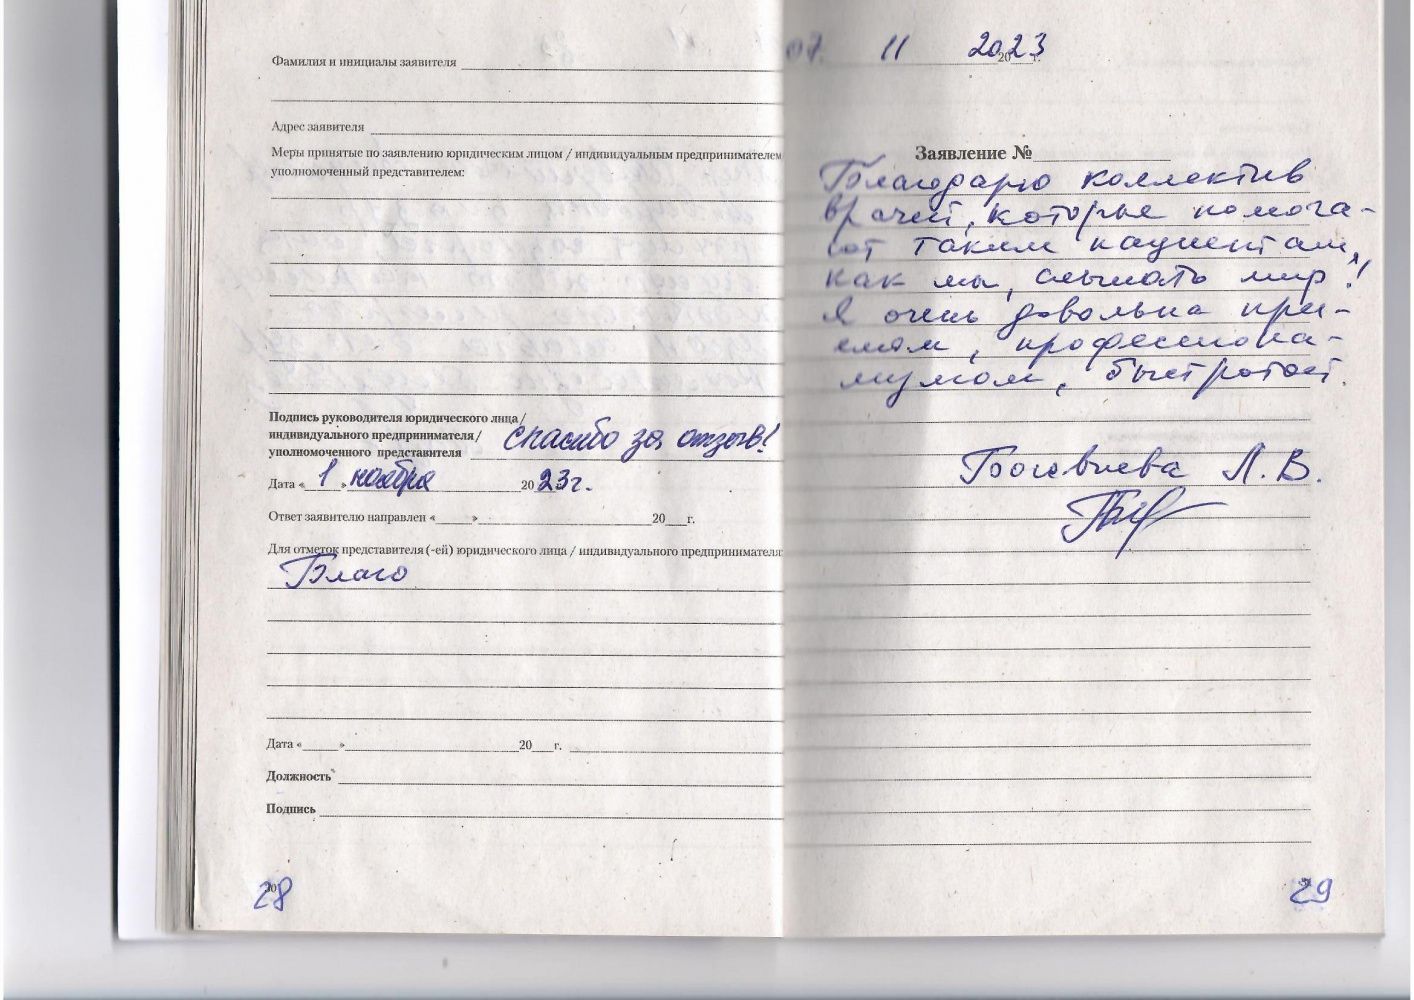 Фамилия и инициалы заявителя
Адрес заявителя
Меры принятые по заявлению юридическим лицом / индивидуальным предпринимателем
уполномоченный представителем:
Подпись руководителя юридического лица/
индивидуального предпринимателя/
уполномоченного представителя спасибо за отзыв!
Дата « 1 » ноября 2023г.
Ответ заявителю направлен «____»____20___г.
Для отметок представителя (-ей) юридического лица / индивидуального предпринимателя
Благо
Дата «____»____20___г.
Должность
Подпись
28
07. 11 2023
20 г.
Заявление №
Благодарю коллектив
врачей, которые помога-
ют таким пациентам,
как мы, слышать мир!
Я очень довольна при-
емом, профессиона-
лизмом, быстротой.
Л. В.
29